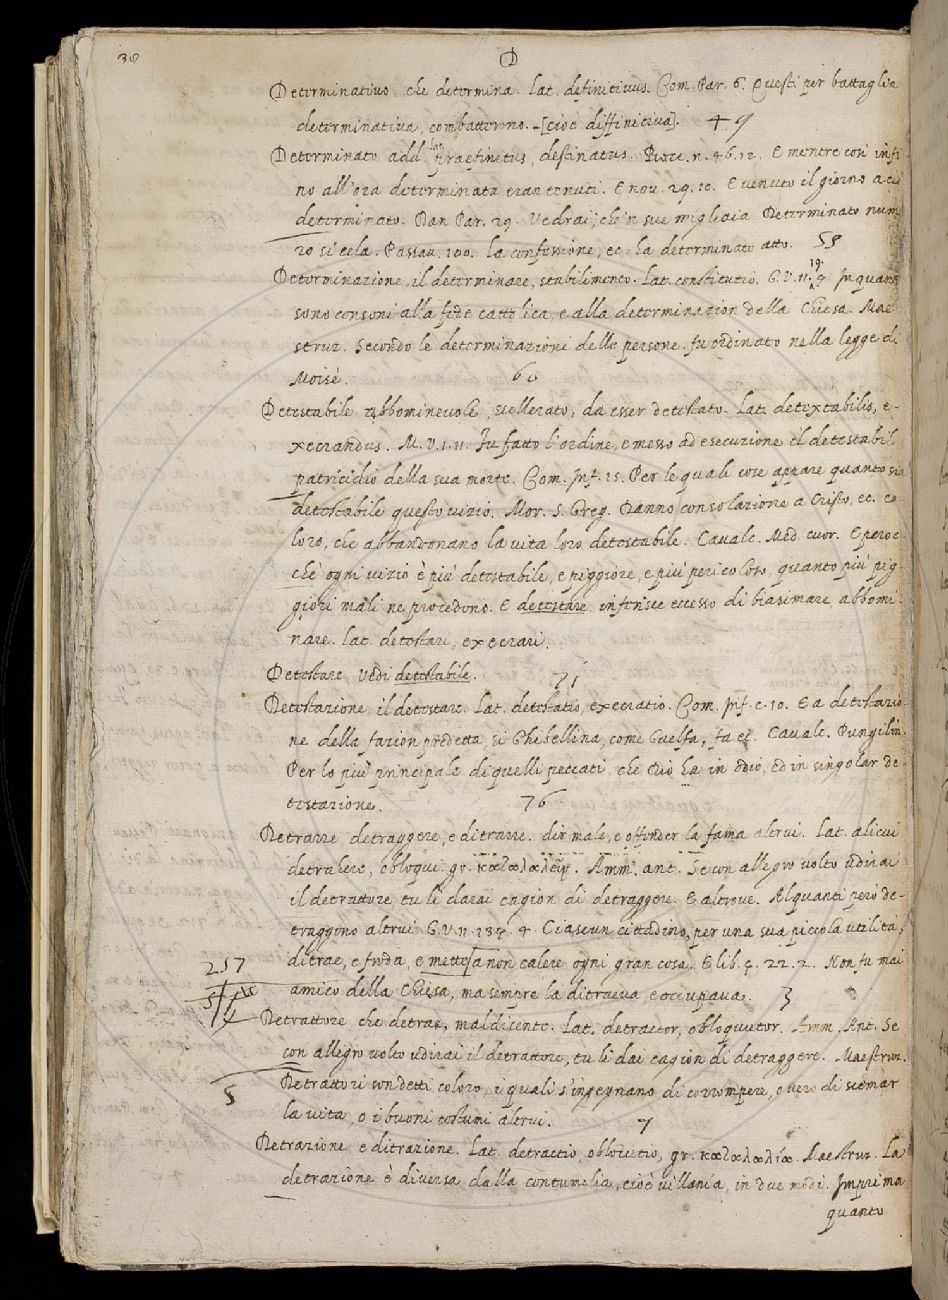 38
D
Determinativo che determina. Lat. definitivus. Com. Par. 6. Questi per battaglia
determinativa, combatterono. [cioè diffinitiva]. 49
Determinato add. Lat. praefinitus, destinatus. Bocc. n. 46. 12. E mentre così infi-
no all'ora determinata eran tenuti. E nov. 29. 10. E venuto il giorno a ciò
determinato. Dan. Par. 29. Vedrai, che 'n sue migliaia Determinato nume
ro si cela. Passav. 100. la confessione, ec. ha determinato atto. 55
Determinazione il determinare, stabilimento. Lat. constitutio. G. V. 11. 19. In quanto
sono consoni alla fede cattolica, e alla determinazion della Chiesa. Mae-
struz. Secondo le determinazioni delle persone, fu ordinato nella legge di
Moisè. 60
Detestabile abbominevole, scellerato, da esser detestato. Lat. detextabilis, e-
xecrandus. M. V. 1. 11. Fu fatto l'ordine, e messo ad esecuzione il detestabil
patricidio della sua morte. Com. Inf. 15. Per le quali cose appare quanto sia
detestabile questo vizio. Mor. S. Greg. Danno consolazione a Cristo, ec. co-
loro, che abbandonano la vita loro detestabile. Cavalc. Med. cuor. E peroc-
chè ogni vizio è più detestabile, e piggiore, e più pericoloso, quanto più pig-
giori mali ne procedono. E detestare. inferisce eccesso di biasimare abbomi-
nare. Lat. detestari, execrari.
Detestare Vedi detestabile. 71
Detestazione il detestare. Lat. detestatio, execratio. Com. Inf. c. 10. E a detestazio-
ne della fazion predetta, sì Ghebellina, come Guelfa, fa ec. Cavalc. Pungilin.
Per lo più principale di quelli peccati che Dio ha in odio, ed in singolar de-
testazione. 76
Detrarre detraggere, e ditrarre. dir male, e offender la fama altrui. Lat. alicui
detrahere, obloqui. gr. καταλαλεῖν. Amm. ant. Se con allegro volto udirai
il detrattore, tu li darai cagion di detraggere. E altrove. Alquanti però de-
traggono altrui. G. V. 11. 134. 4. Ciascun cittadino, per una sua piccola utilità,
ditrae, e froda, e mette a non calere ogni gran cosa. E lib. 9. 22. 2. Non fu mai
257
amico della Chiesa, ma sempre la ditraeva, e occupava. 3
Detrattore che detrae, maldicente. Lat. detractor, obloquutor. Amm. Ant. Se
con allegro volto udirai il detrattore, tu li dai cagion di detraggere. Maestruz.
5
Detrattori son detti coloro, i quali s'ingegnano di corrompere, overo di scemar
la vita, o i buoni costumi altrui. 7
Detrazione e ditrazione. Lat. detractio, oblocutio, gr. καταλαλία. Maestruz. La
detrazione è diversa dalla contumelia, cioè villania, in due modi. Imprima
quanto